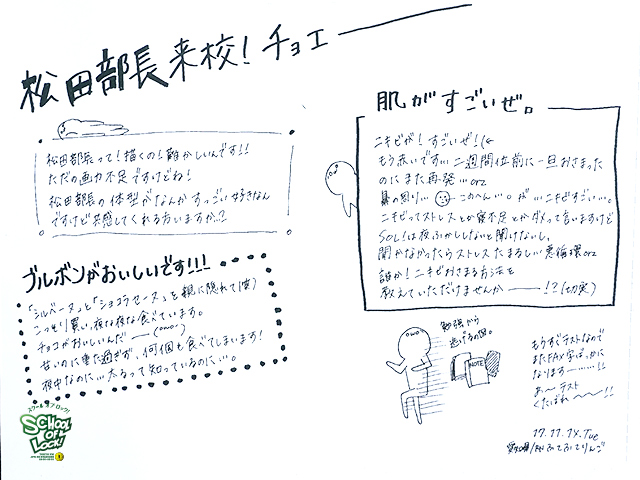 松田部長来校!チョエ――
松田部長って!描くの!難かしいんです!!
ただの画力不足ですけどね!
松田部長の体型がなんかすっごい好きなん
ですけど共感してくれる方いますか?
ブルボンがおいしいです!!!
「シルベーヌ」と「ショコラセーヌ」を親に隠れて(笑)
こっそり買い、夜な夜な食べています。
チョコがおいしいんだ――(°ω°)
甘いのに重た過ぎず、何個も食べてしまいます!
夜中なのに…太るって知っているのに…。
スクール オブ ロック!
SCHOOL OF LOCK!
肌がすごいぜ。
ニキビが!すごいぜ!
もう赤いです…二週間位前に一旦おさまった
のにまた再発…orz
鼻の周り…このへん…。が…ニキビすごい…。
ニキビってストレスとか寝不足とかダメって言いますけど
SOL!は夜ふかししないと聞けないし、
聞かなかったらストレスたまるしい悪循環orz
誰か!ニキビおさまる方法を
教えていただけませんか――!?(切実)
勉強から
逃げるの図。
NOTE
もうすぐテストなので
またFAX字ばっかに
なります……!!
あ〜テスト
くたばれ〜〜!!
17.11.14.Tue